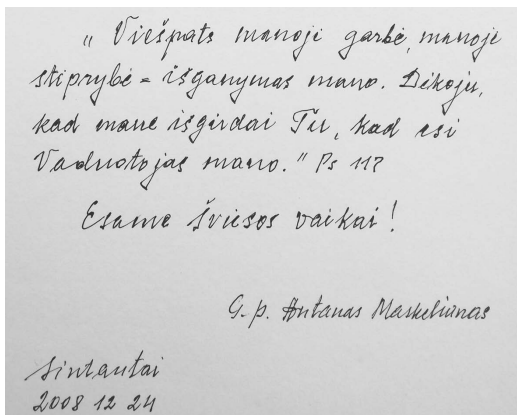 „Viešpats manoji garbė, manoji
stiprybė = išganymas mano. Dėkoju,
kad mane išgirdai Tu, kad esi
Vaduotojas mano." Ps 117
Esame šviesos vaikai!
G. p. Antanas Maskeliūnas
Sintautai
2008 12 24